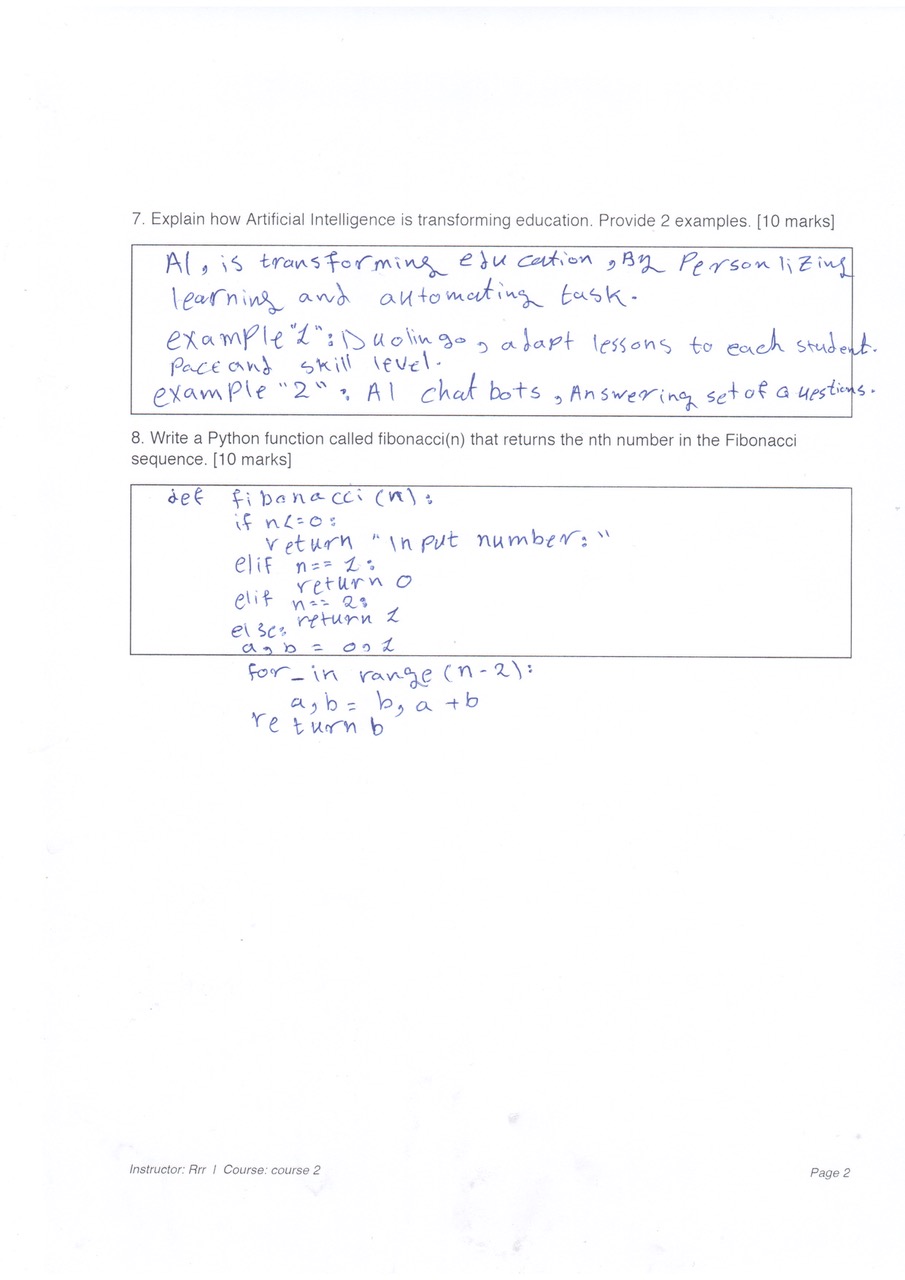 7. Explain how Artificial Intelligence is transforming education. Provide 2 examples. [10 marks]
AI, is transforming education, By Personlizing
learning and automating task.
example "1": Duolingo, adapt lessons to each student.
Pace and skill level.
example "2": AI chat bots, Answering set of Questions.
8. Write a Python function called fibonacci(n) that returns the nth number in the Fibonacci
sequence. [10 marks]
def fibonacci(n):
if n<=0:
return "Input number:"
elif n== 1:
return 0
elif n== 2:
return 1
else:
a, b = 0, 1
for _ in range (n-2):
a, b = b, a + b
return b
Instructor: Rrr | Course: course 2
Page 2